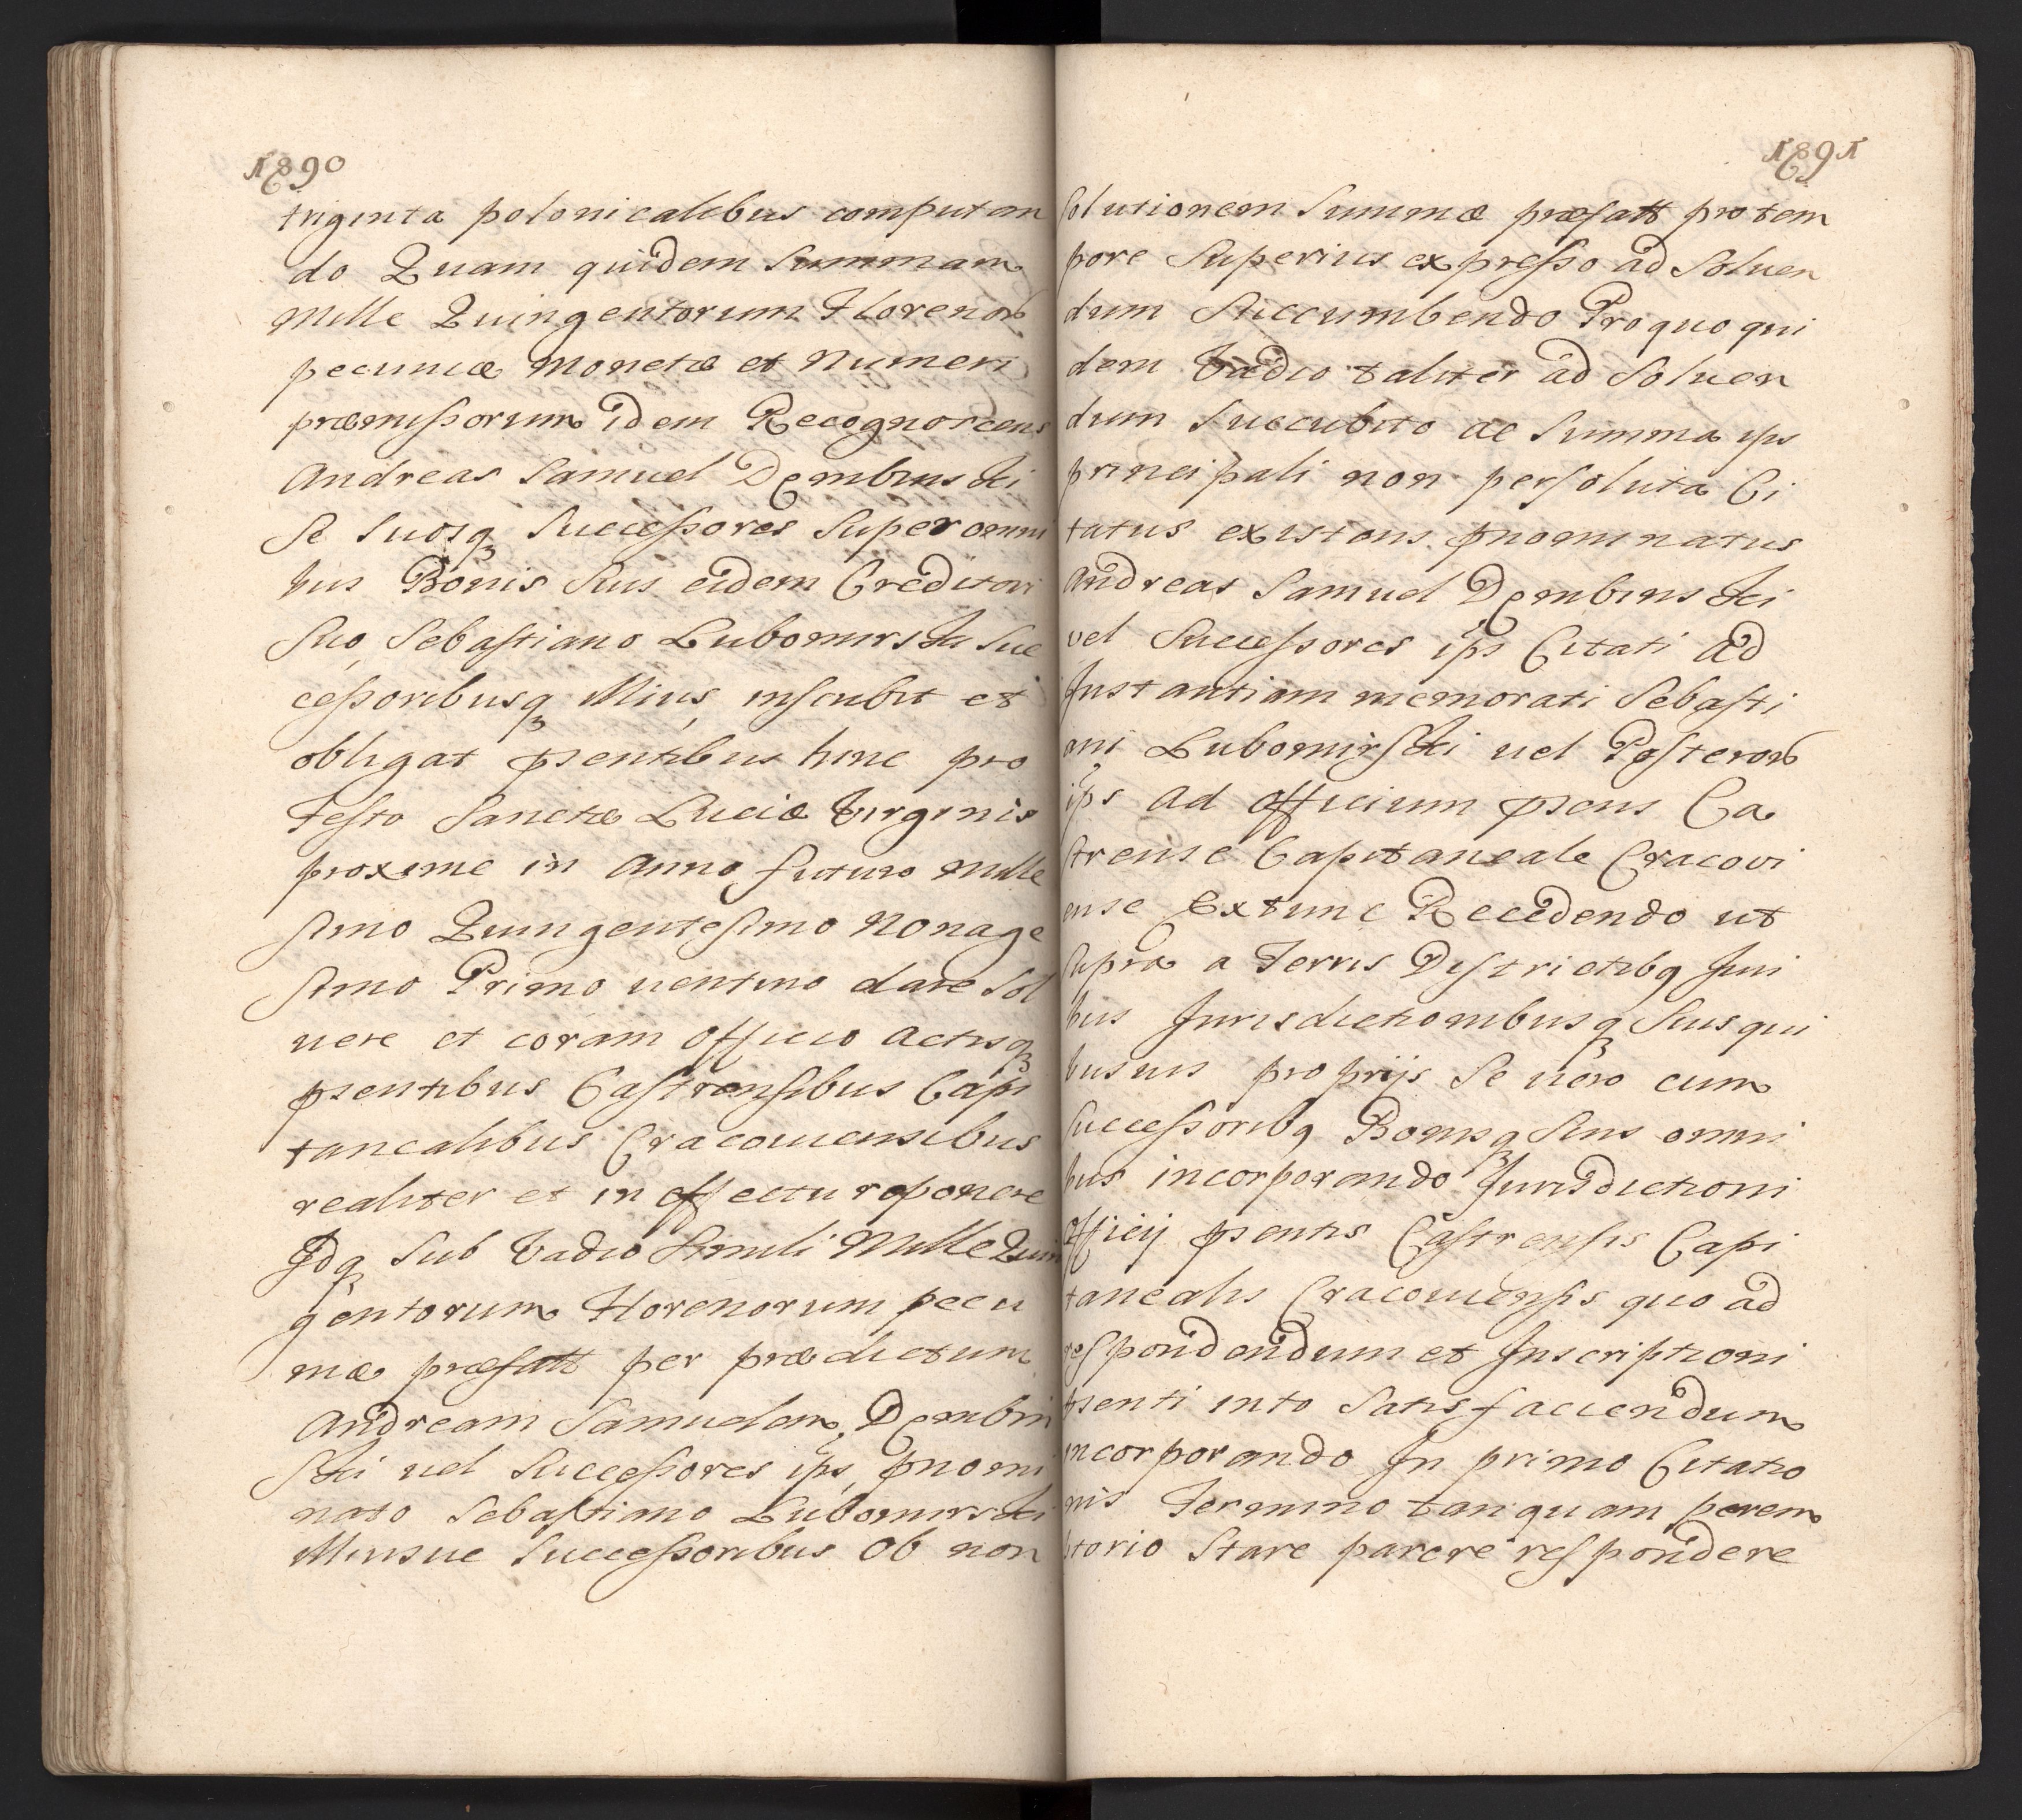 1890
triginta polonicalibus computan
do Quam quidem Summam
Mille Quingentorum Florenor
pecuniæ Monetæ et Numeri
præmissorum idem Recognoscens
Andreas Samuel Dembinski
Se Suosq Successores Super omni
bus Bonis Suis eidem Creditori
Suo Sebastiano Lubomirski Suc
cessoribusq Illius, inscribit et
obligat pñtibus hinc pro
Festo Sanctæ Luciæ Virginis
proxime in Anno futuro Mille
simo Quingentesimo Nonage
simo Primo venturo dare Sol
uere et coram Officio Actisq
psentibus Castrensibus Capi
tanealibus Cracouiensibus
realiter et in effectu reponere
Idq Sub Vadio Simili Mille Quin
gentorum Florenorum pecu
niæ præfatt per prædictum
Andream Samuelem Dembin
ski uel Successores ips pnomi
nato Sebastiano Lubomirski
Illiusue Successoribus Ob non
1891
Solutionem Summæ præfatt pro tem
pore Superius expresso ad Soluen
dum Succumbendo Pro quo qui
dem Vadio taliter ad Soluen
dum Succubito ac Summa ips
principali non persoluta Ci
tatus existens pnominatus
Andreas Samuel Dembinski
vel Successores ips Citati Ad
Instantiam memorati Sebasti
ani Lubomirski uel Posteror
ips ad Officium psens Ca
strense Capitaneale Cracovi
ense Extunc Recedendo ut
Supra a Terris Districtibq Juri
bus Jurisdictionibusq Suis qui
busuis proprijs Se uero cum
Successoribq Bonisq Suis omni
bus incorporando Jurisdictioni
Officij psentis Castrensis Capi
tanealis Cracouiensis quo ad
respondendum et Inscriptioni
psenti into Satisfaciendum
incorporando In primo Citatio
nis Termino tanquam perem
ptorio Stare parere respondere